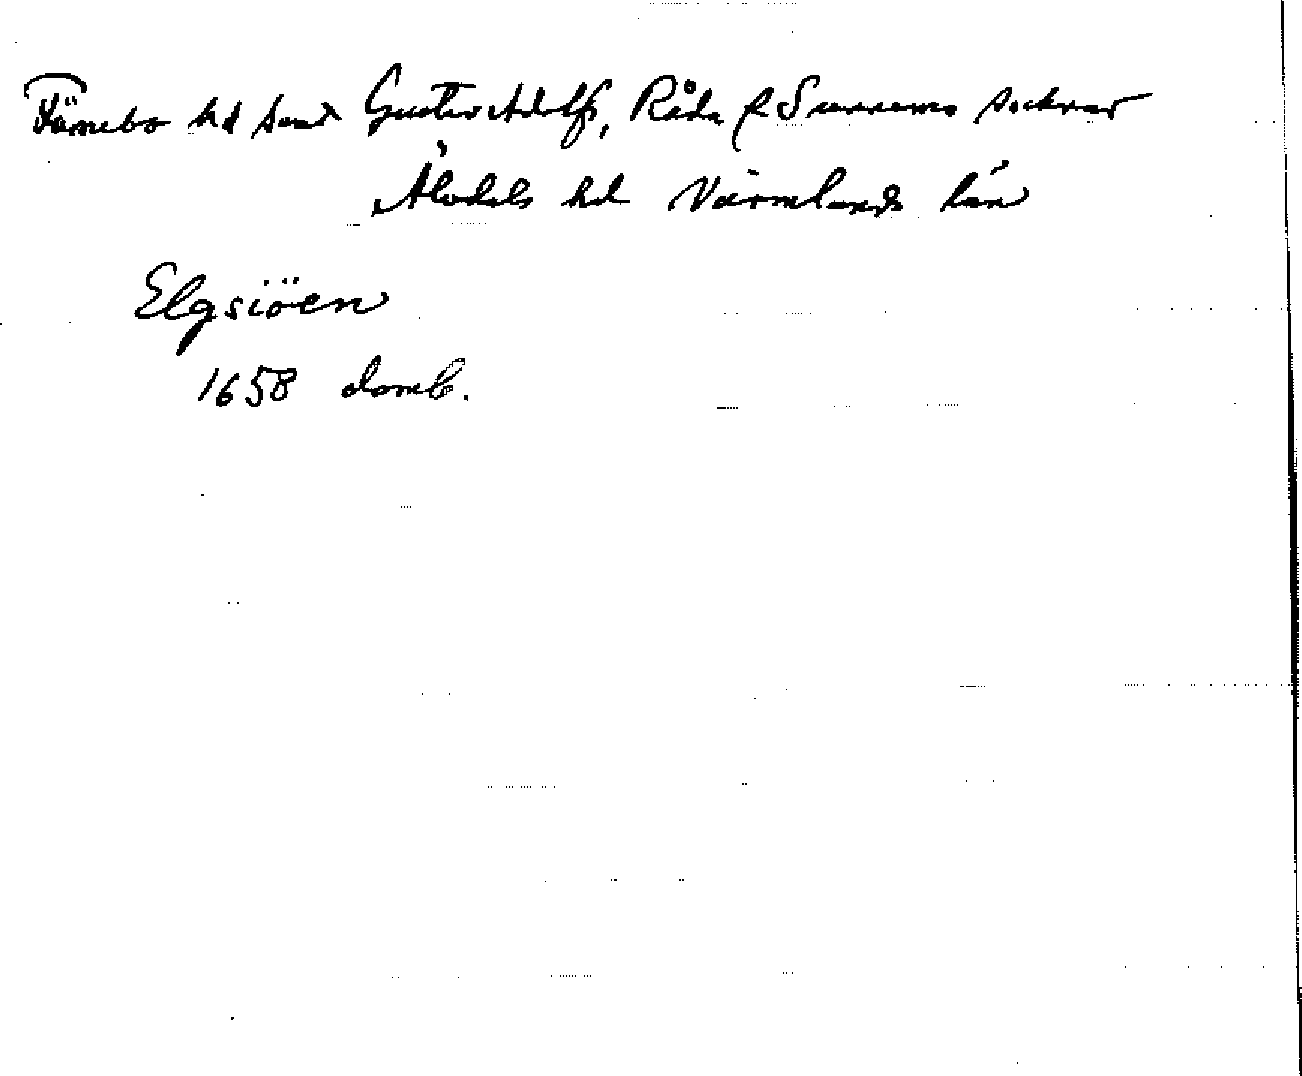 Färnebo hd samt Gustav Adolfs, Råda & Sunnemo socknar
Älvdals hd Värmlands län
Elgsiöen
1658 domb.